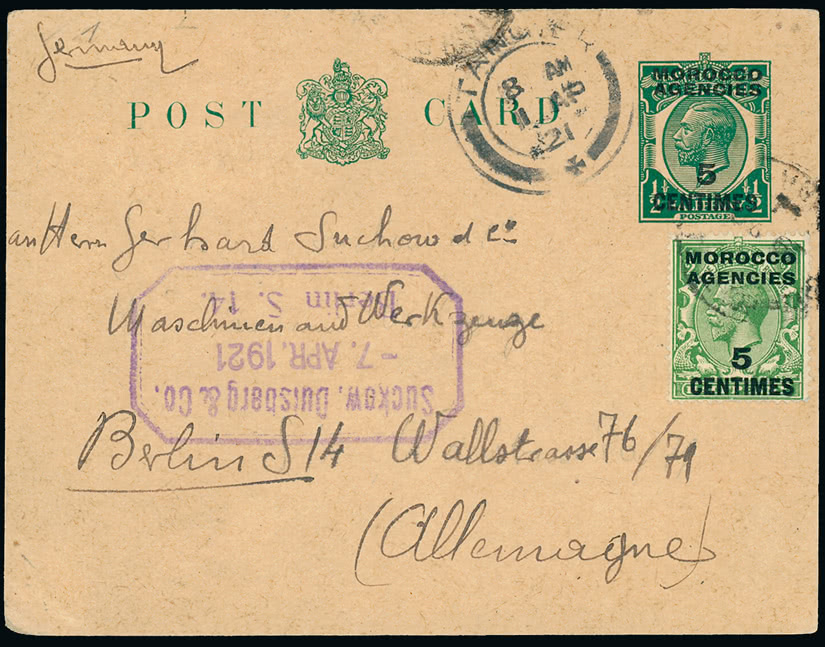 Germany
POST CARD
TANGIER
8 AM
11 AP
21
MOROCCO
AGENCIES
5
CENTIMES
1/2 1/2
POSTAGE
an Herrn Gerhard Suckow & Co
Maschinen und Werkzeuge
Berlin S14 Wallstrasse 76/79
(Allemagne)
MOROCCO
AGENCIES
5
CENTIMES
Suckow, Duisberg & Co.
- 7. APR. 1921
Berlin S. 14.